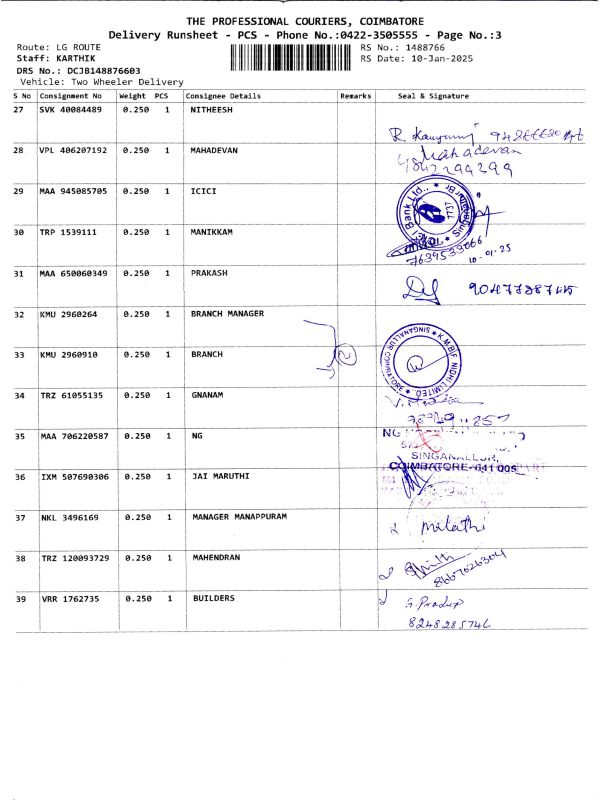 THE PROFESSIONAL COURIERS, COIMBATORE
Delivery Runsheet - PCS - Phone No.:0422-3505555 - Page No.:3
Route: LG ROUTE RS No.: 1488766
Staff: KARTHIK RS Date: 10-Jan-2025
DRS No.: DCJB148876603
Vehicle: Two Wheeler Delivery
S No Consignment No Weight PCS Consignee Details Remarks Seal & Signature
27 SVK 40084489 0.250 1 NITHEESH
28 VPL 406207192 0.250 1 MAHADEVAN Mahadevan
29 MAA 945085705 0.250 1 ICICI
30 TRP 1539111 0.250 1 MANIKKAM 7639533066 10-01-25
31 MAA 650060349 0.250 1 PRAKASH
32 KMU 2960264 0.250 1 BRANCH MANAGER
33 KMU 2960910 0.250 1 BRANCH 2 K.M.B.F. NIDHI LIMITED. SINGANALLUR COIMBATORE
34 TRZ 61055135 0.250 1 GNANAM
35 MAA 706220587 0.250 1 NG NG
SINGANALLUR,
COIMBATORE-641 005
36 IXM 507690306 0.250 1 JAI MARUTHI
37 NKL 3496169 0.250 1 MANAGER MANAPPURAM
38 TRZ 120093729 0.250 1 MAHENDRAN 8667626304
39 VRR 1762735 0.250 1 BUILDERS S. Pradup
8248285746